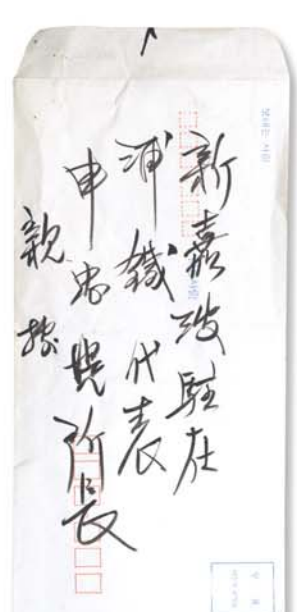 新嘉坡駐在
浦鐵代表
申忠晃所長
親披